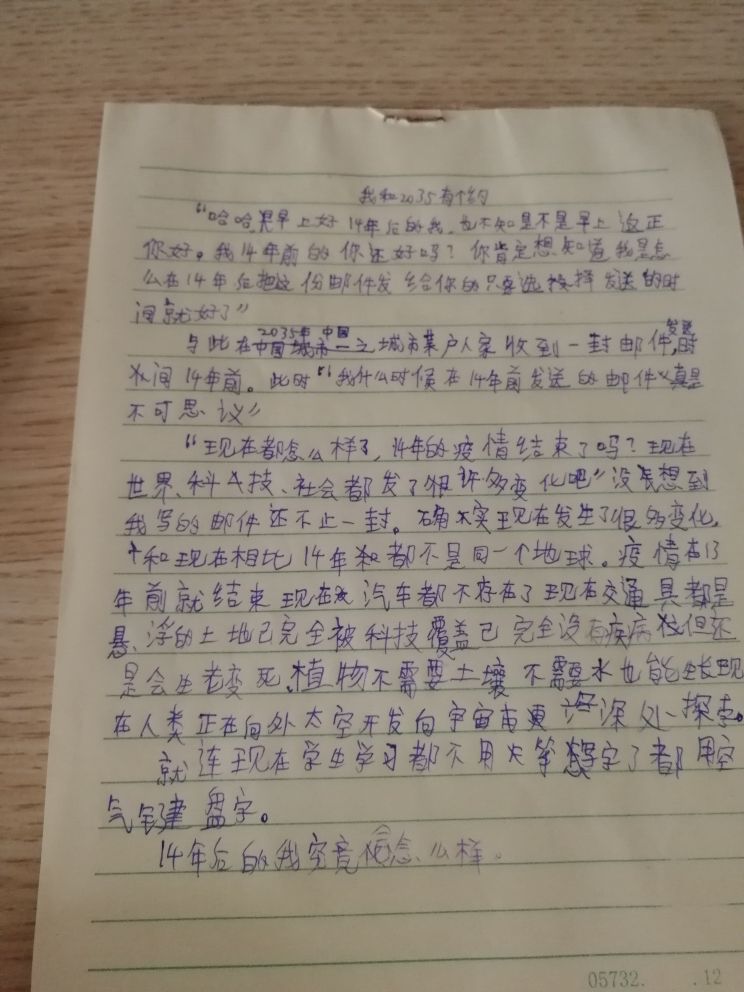 我和2035有个约
“哈哈早上好14年后的我,也不知是不是早上 反正
你好。我14年前的你还好吗?你肯定想知道我是怎
么在14年后把这份邮件发给你的只要选择发送的时
间就好了”
与此在2035年中国之城市某户人家收到一封邮件,发送时
间14年前。此时“我什么时候在14年前发送的邮件真是
不可思议”
“现在都怎么样了,14年的疫情结束了吗?现在
世界、科技、社会都发了很许多变化吧”没想到
我写的邮件还不止一封。确实现在发生了很多变化,
和现在相比14年和都不是同一个地球。疫情在13
年前就结束现在汽车都不存在了现在交通具都是
悬浮的土地已完全被科技覆盖已完全没有疾病但还
是会生老变死,植物不需要土壤不需要水也能生长现
在人类正在向外太空开发向宇宙更深处探索。
就连现在学生学习都不用写字了都用空
气键盘字。
14年后的我究竟会怎么样。
05732. .12